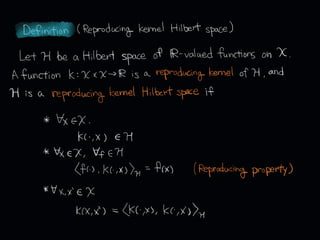 Definition (Reproducing kernel Hilbert space)
Let ℋ be a Hilbert space of ℝ-valued functions on 𝒳.
A function k: 𝒳 × 𝒳 → ℝ is a reproducing kernel of ℋ, and
ℋ is a reproducing kernel Hilbert space if
* ∀x ∈ 𝒳.
k(·,x) ∈ ℋ
* ∀x ∈ 𝒳, ∀f ∈ ℋ
⟨f(·), k(·,x)⟩_ℋ = f(x) (Reproducing property)
* ∀x,x' ∈ 𝒳
k(x,x') = ⟨k(·,x), k(·,x')⟩_ℋ